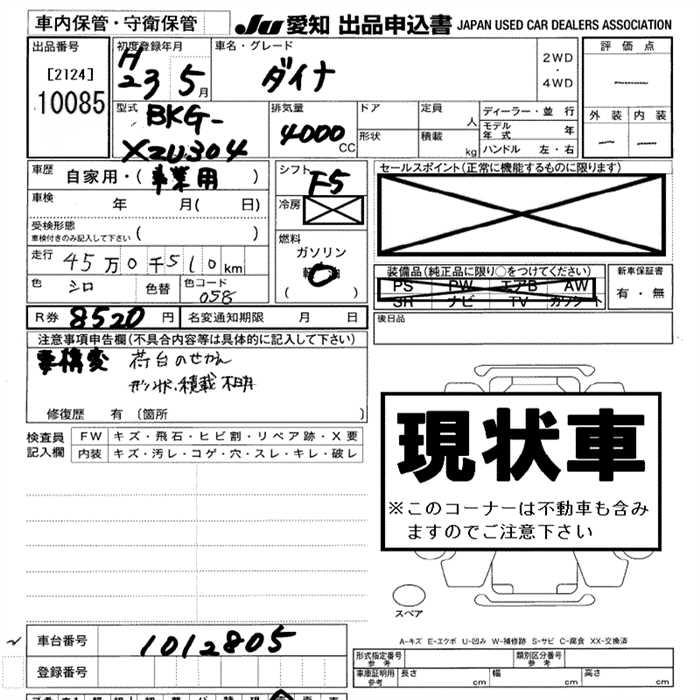 車内保管・守衛保管
JU 愛知 出品申込書 JAPAN USED CAR DEALERS ASSOCIATION
出品番号 初度登録年月 車名・グレード 評価点
[2124] H 23 5月 ダイナ 2WD・4WD
10085
型式 BKG-XZU304 排気量 4000 CC ドア 定員 人 ディーラー・並行 外装 内装
形状 積載 kg モデル年式 年
ハンドル 左・右
車歴 自家用・(事業用) シフト F5 セールスポイント(正常に機能するものに限ります)
車検 年 月 ( 日) 冷房
受検形態 車検付きのみ記入して下さい ( ) 燃料 ガソリン
走行 45万0千510km ( )
装備品(純正品に限り○をつけてください) 新車保証書
PS PW エアB AW 有・無
SR ナビ TV カワシート
色 シロ 色替 色コード 058
R券 8520円 名変通知期限 月 日 後日品
注意事項申告欄(不具合内容等は具体的に記入して下さい)
荷台のせかえ
形状、積載不明
修復歴 有 (箇所 )
検査員記入欄 FW キズ・飛石・ヒビ割・リペア跡・X要
内装 キズ・汚レ・コゲ・穴・スレ・キレ・破レ
現状車
※このコーナーは不動車も含み
ますのでご注意下さい
スペア
A-キズ E-エクボ U-凹み W-補修跡 S-サビ C-腐食 XX-交換済
車台番号 1012805 形式指定番号 参考 類別区分番号 参考
登録番号 車庫証明用 参考 長さ cm 幅 cm 高さ cm